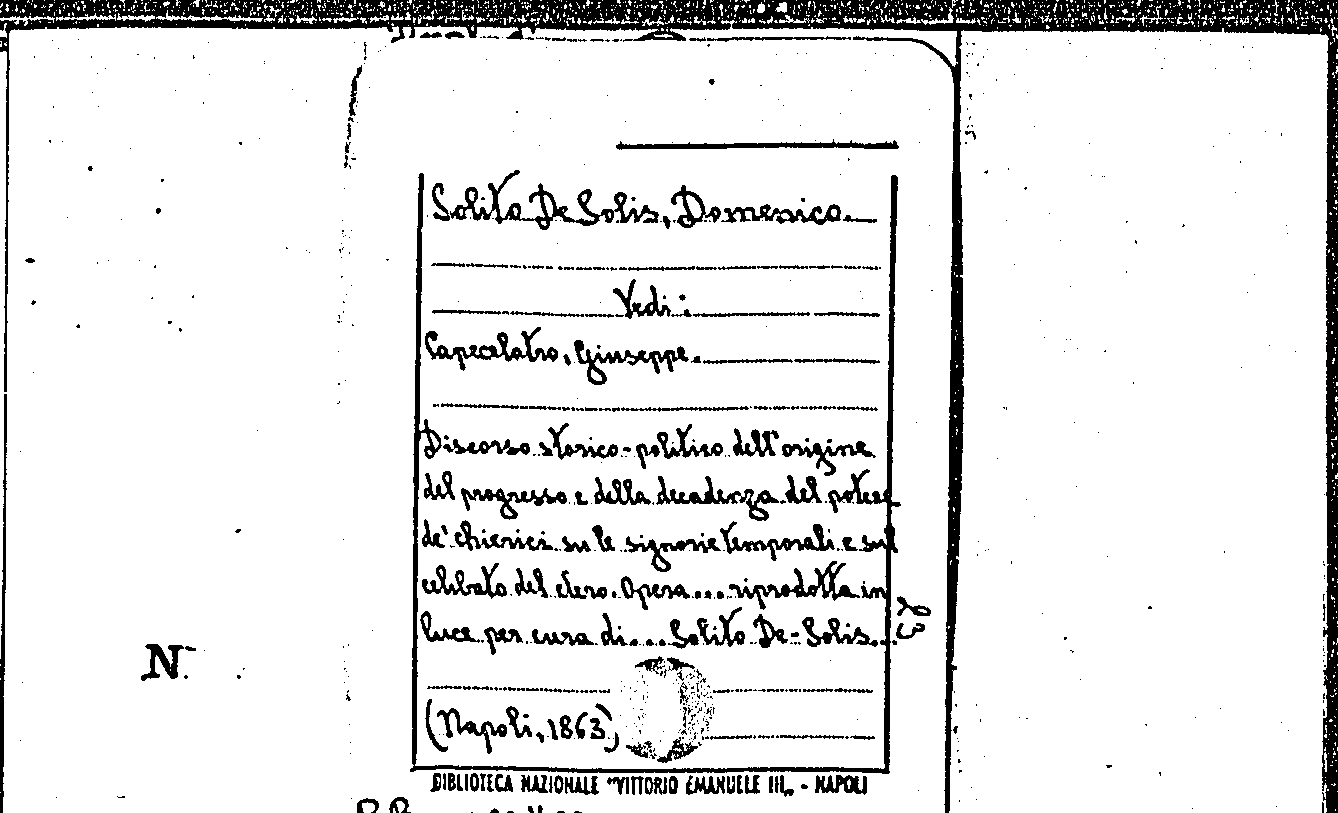 Solito De Solis, Domenico.
Vedi:
Capecelatro, Giuseppe.
Discorso storico-politico dell'origine
del progresso e della decadenza del potere
de' chierici su le signorie temporali e sul
celibato del clero. Opera... riprodotta in
luce per cura di... Solito De-Solis...
23
N.
(Napoli, 1863)
BIBLIOTECA NAZIONALE "VITTORIO EMANUELE III„ - NAPOLI